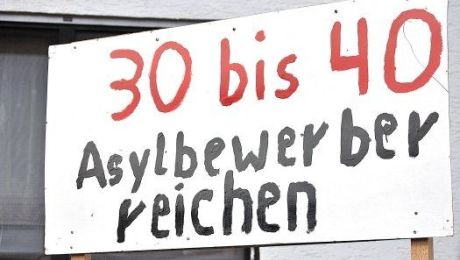 30 bis 40
Asylbewerber
reichen